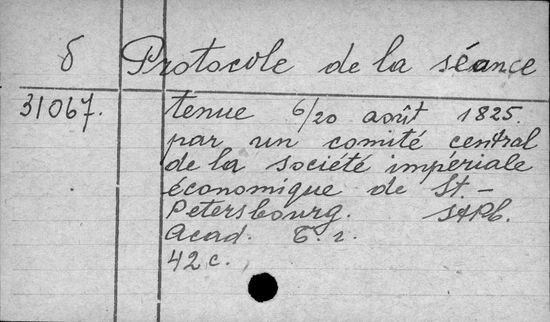 б Protocole de la séance
31067. tenue 6/20 août 1825.
par un comité central
de la société impériale
économique de St-
Petersbourg. StPb.
Acad. Б. г.
42 с.